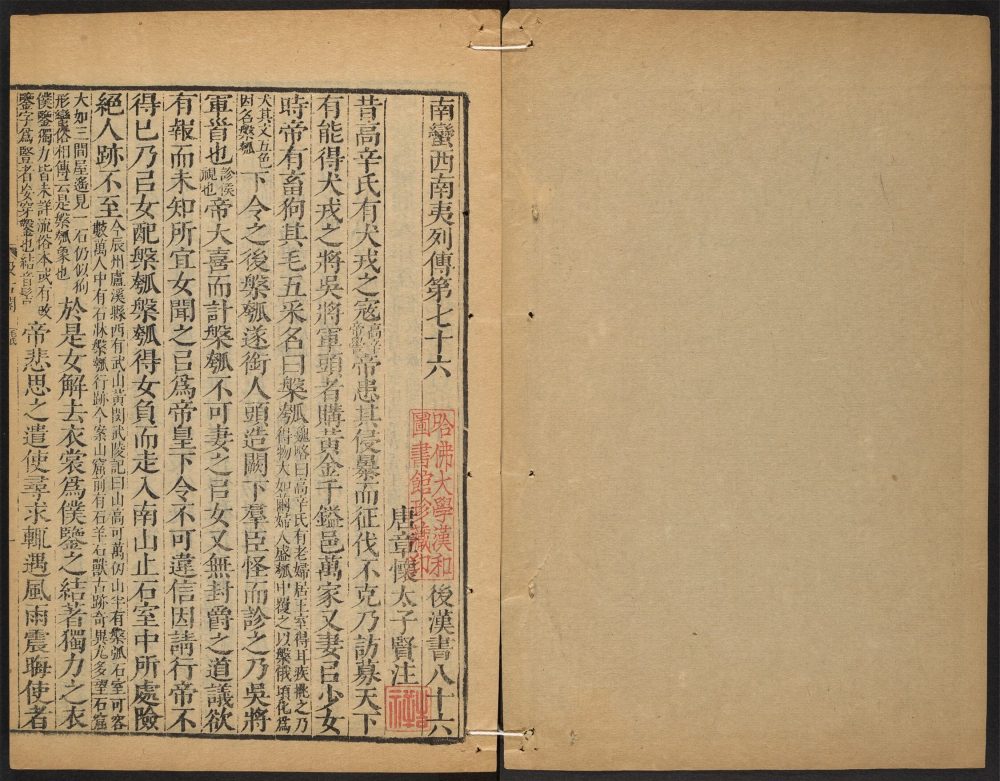 南蠻西南夷列傳第七十六 後漢書八十六
唐章懷太子賢注
昔高辛氏有犬戎之寇高辛帝嚳帝患其侵暴而征伐不克乃訪募天下
有能得犬戎之將吳將軍頭者購黃金千鎰邑萬家又妻㠯少女
時帝有畜狗其毛五采名曰槃瓠魏略曰高辛氏有老婦居王室得耳疾挑之乃得物大如繭婦人盛瓠中覆之以槃俄頃化爲
犬其文五色因名槃瓠下令之後槃瓠遂銜人頭造闕下羣臣怪而診之乃吳將
軍首也診候視也帝大喜而計槃瓠不可妻之㠯女又無封爵之道議欲
有報而未知所宜女聞之㠯爲帝皇下令不可違信因請行帝不
得已乃㠯女配槃瓠槃瓠得女負而走入南山止石室中所處險
絕人跡不至今辰州盧溪縣西有武山黃閔武陵記曰山高可萬仞山半有槃瓠石室可容數萬人中有石牀槃瓠行跡今案山窟前有石羊石獸古跡奇異尤多望石窟
大如三間屋遙見一石仍似狗形蠻俗相傳云是槃瓠象也於是女解去衣裳爲僕鑒之結著獨力之衣
僕鑒獨力皆未詳流俗本或有改鑒字爲竪者妄穿鑿也結音髻帝悲思之遣使尋求輒遇風雨震晦使者
哈佛大學漢和
圖書館珍藏印